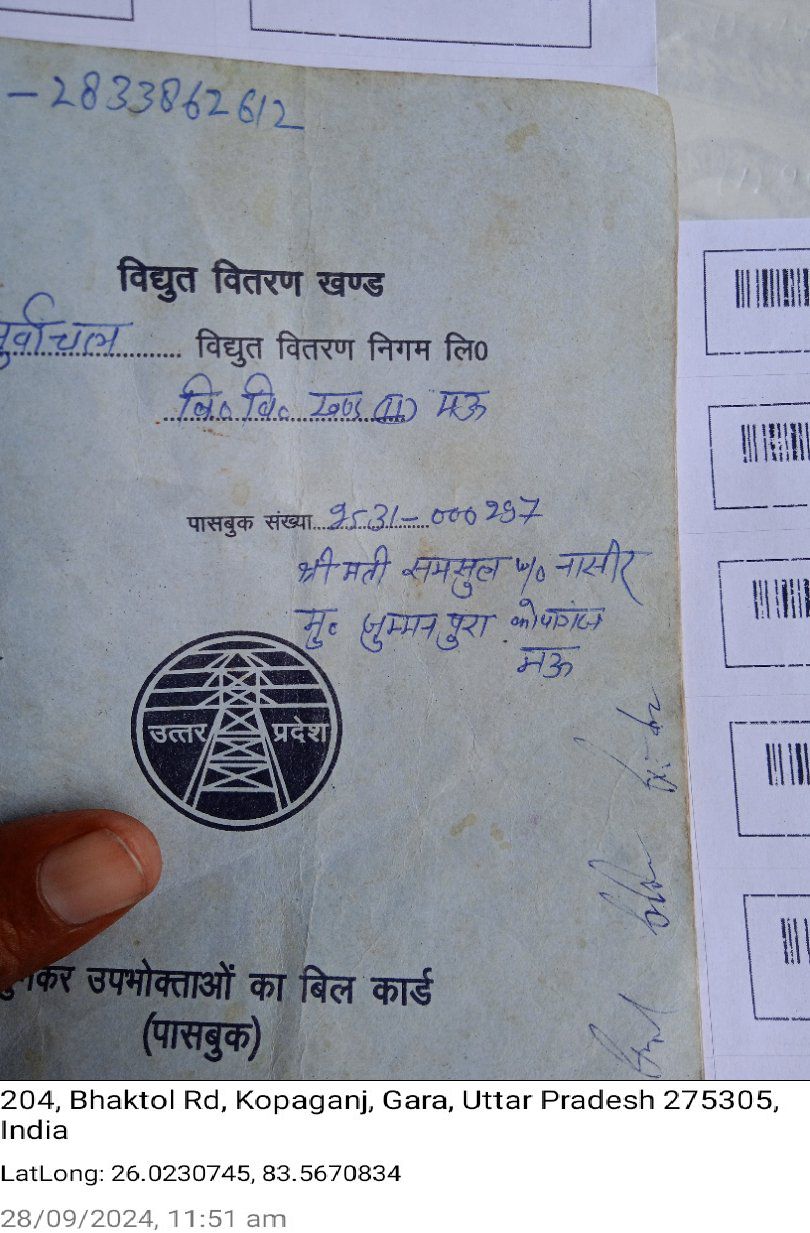 -2833862612
विद्युत वितरण खण्ड
पूर्वांचल विद्युत वितरण निगम लि०
वि० वि० खण्ड (II) मऊ
पासबुक संख्या 9531-000297
श्रीमती समसुल w/o नासीर
मु० जुम्मनपुरा कोपागंज
मऊ
उत्तर प्रदेश
बुनकर उपभोक्ताओं का बिल कार्ड
(पासबुक)
204, Bhaktol Rd, Kopaganj, Gara, Uttar Pradesh 275305,
India
LatLong: 26.0230745, 83.5670834
28/09/2024, 11:51 am